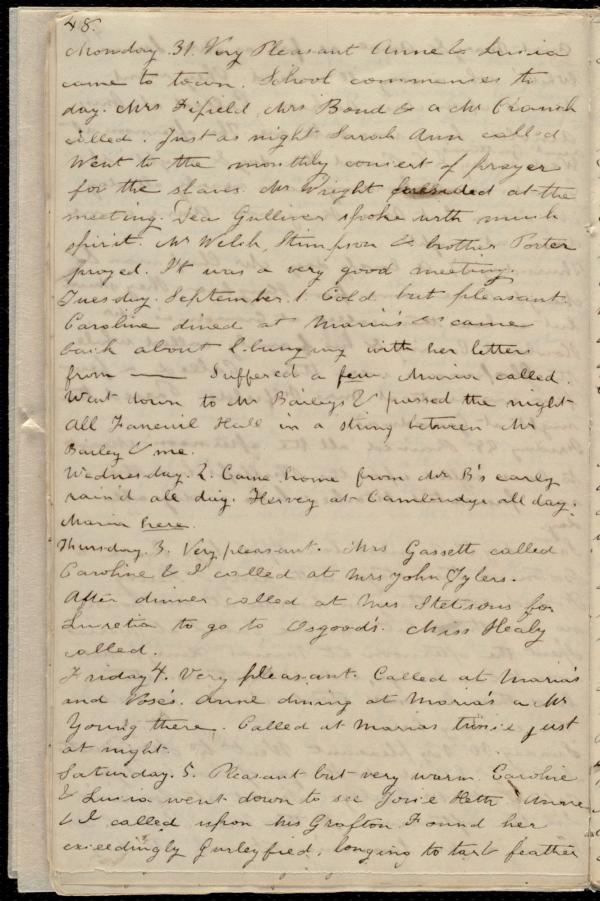 48.
Monday. 31. Very Pleasant Anne & Lucia
came to town. School commences to
day. Mrs Fifield, Mrs Bond & a Mr Cranch
called. Just as night Sarah Ann called
Went to the monthly concert of prayer
for the slaves. Mr Wright presided at the
meeting. Dea Gulliver spoke with much
spirit. Mr Welch, Stimpson & brother Porter
prayed. It was a very good meeting.
Tuesday. September. 1. Cold but pleasant.
Caroline dined at Maria's & came
back about 2. bringing with her letters
from —— Suffered a few Maria called.
Went down to Mr Baileys & passed the night
All Faneuil Hall in a string between Mr
Bailey & me.
Wednesday. 2. Came home from Mr B's early
rain'd all day. Hervey at Cambridge all day.
Maria here.
Thursday. 3. Very pleasant. Mrs Gassett called
Caroline & I called at Mrs John Tylers.
After dinner called at Mrs Stetsons for
Lucretia to go to Osgood's. Miss Healy
called.
Friday 4. Very pleasant. Called at Maria's
and Vose's. Anne dining at Maria's a Mr
Young there. Called at Marias twice just
at night.
Saturday. 5. Pleasant but very warm. Caroline
& Lucia went down to see Anne
& I called upon Mrs Grafton Found her
exceedingly Gurleyfied, longing to tar & feather